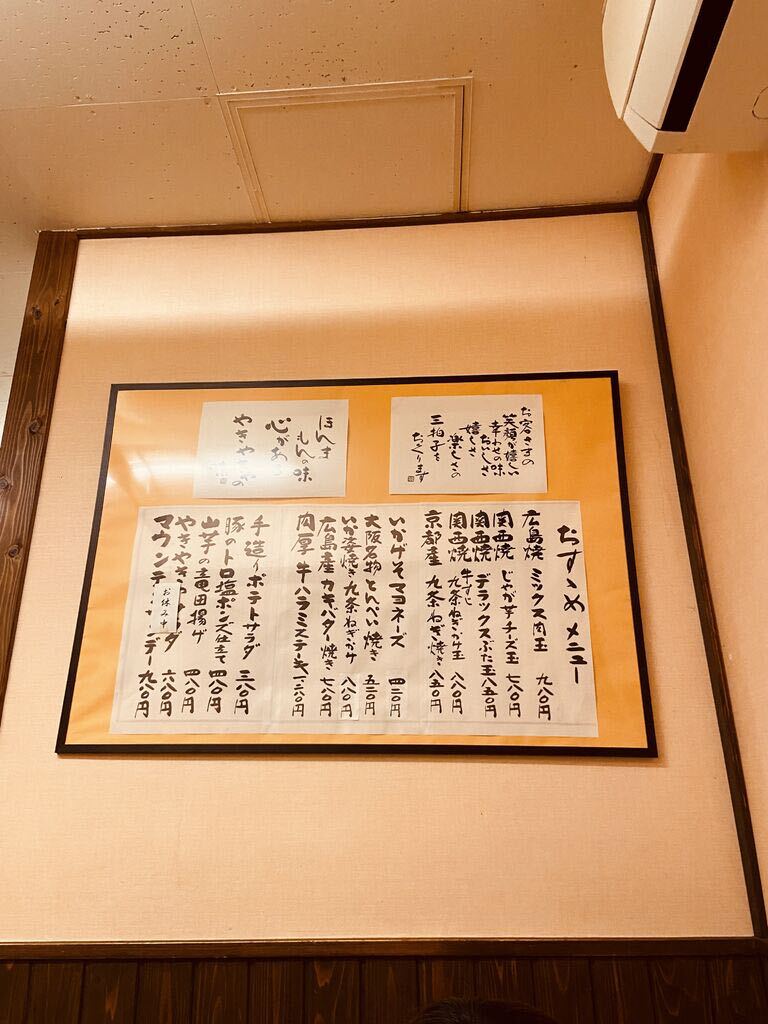 お客さまの
笑顔が嬉しい
幸わせの味
おいしさ
嬉しさ
楽しさの
三拍子を
おつくります
ほんま
もんの味
心がある
やきやきやの
おすゝめメニュー
広島焼 ミックス肉玉 九八〇円
関西焼 じゃが芋チーズ玉 七八〇円
関西焼 デラックスぶた玉 八五〇円
関西焼 牛すじ九条ねぎかけ玉 八八〇円
京都産 九条ねぎ焼き 八五〇円
いかゲそマヨネーズ 四二〇円
大阪名物とんぺい焼き 五二〇円
いか姿焼き九条ねぎかけ 八八〇円
広島産カキバター焼き 七八〇円
肉厚 牛ハラミステーキ 一、二八〇円
手造りポテトサラダ 三八〇円
豚のトロ塩ポンズ仕立て 四八〇円
山芋の竜田揚げ 四八〇円
やきやき サラダ 六八〇円
マウンテ デー 九八〇円
お休み中